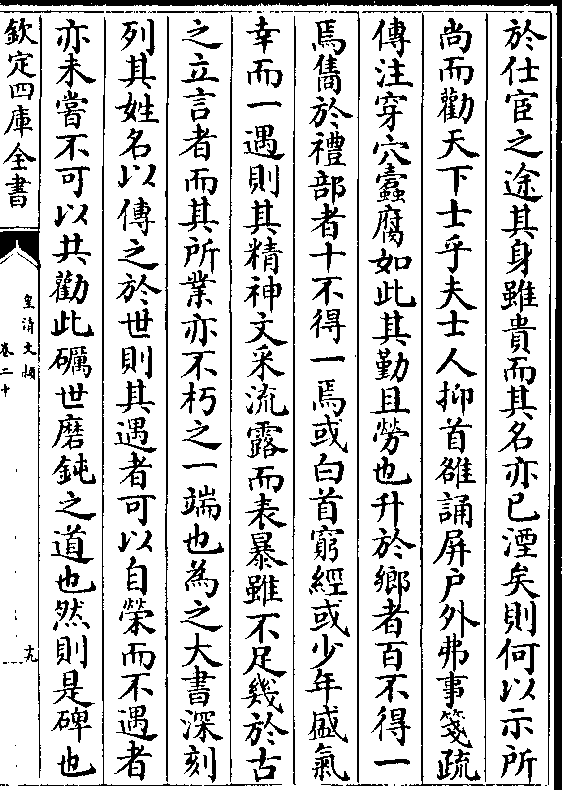 於仕宦之途其身雖貴而其名亦已湮矣則何以示所
尚而勸天下士乎夫士人抑首雒誦屏户外弗事箋疏
傳注穿穴蠧腐如此其勤且勞也升於鄉者百不得一
焉雋於禮部者十不得一焉或白首窮經或少年盛氣
幸而一遇則其精神文采流露而表暴雖不足幾於古
之立言者而其所業亦不朽之一端也為之大書深刻
列其姓名以傳之於世則其遇者可以自榮而不遇者
亦未嘗不可以共勸此礪世磨鈍之道也然則是碑也
欽定四庫全書
皇清文頴
卷二十
九